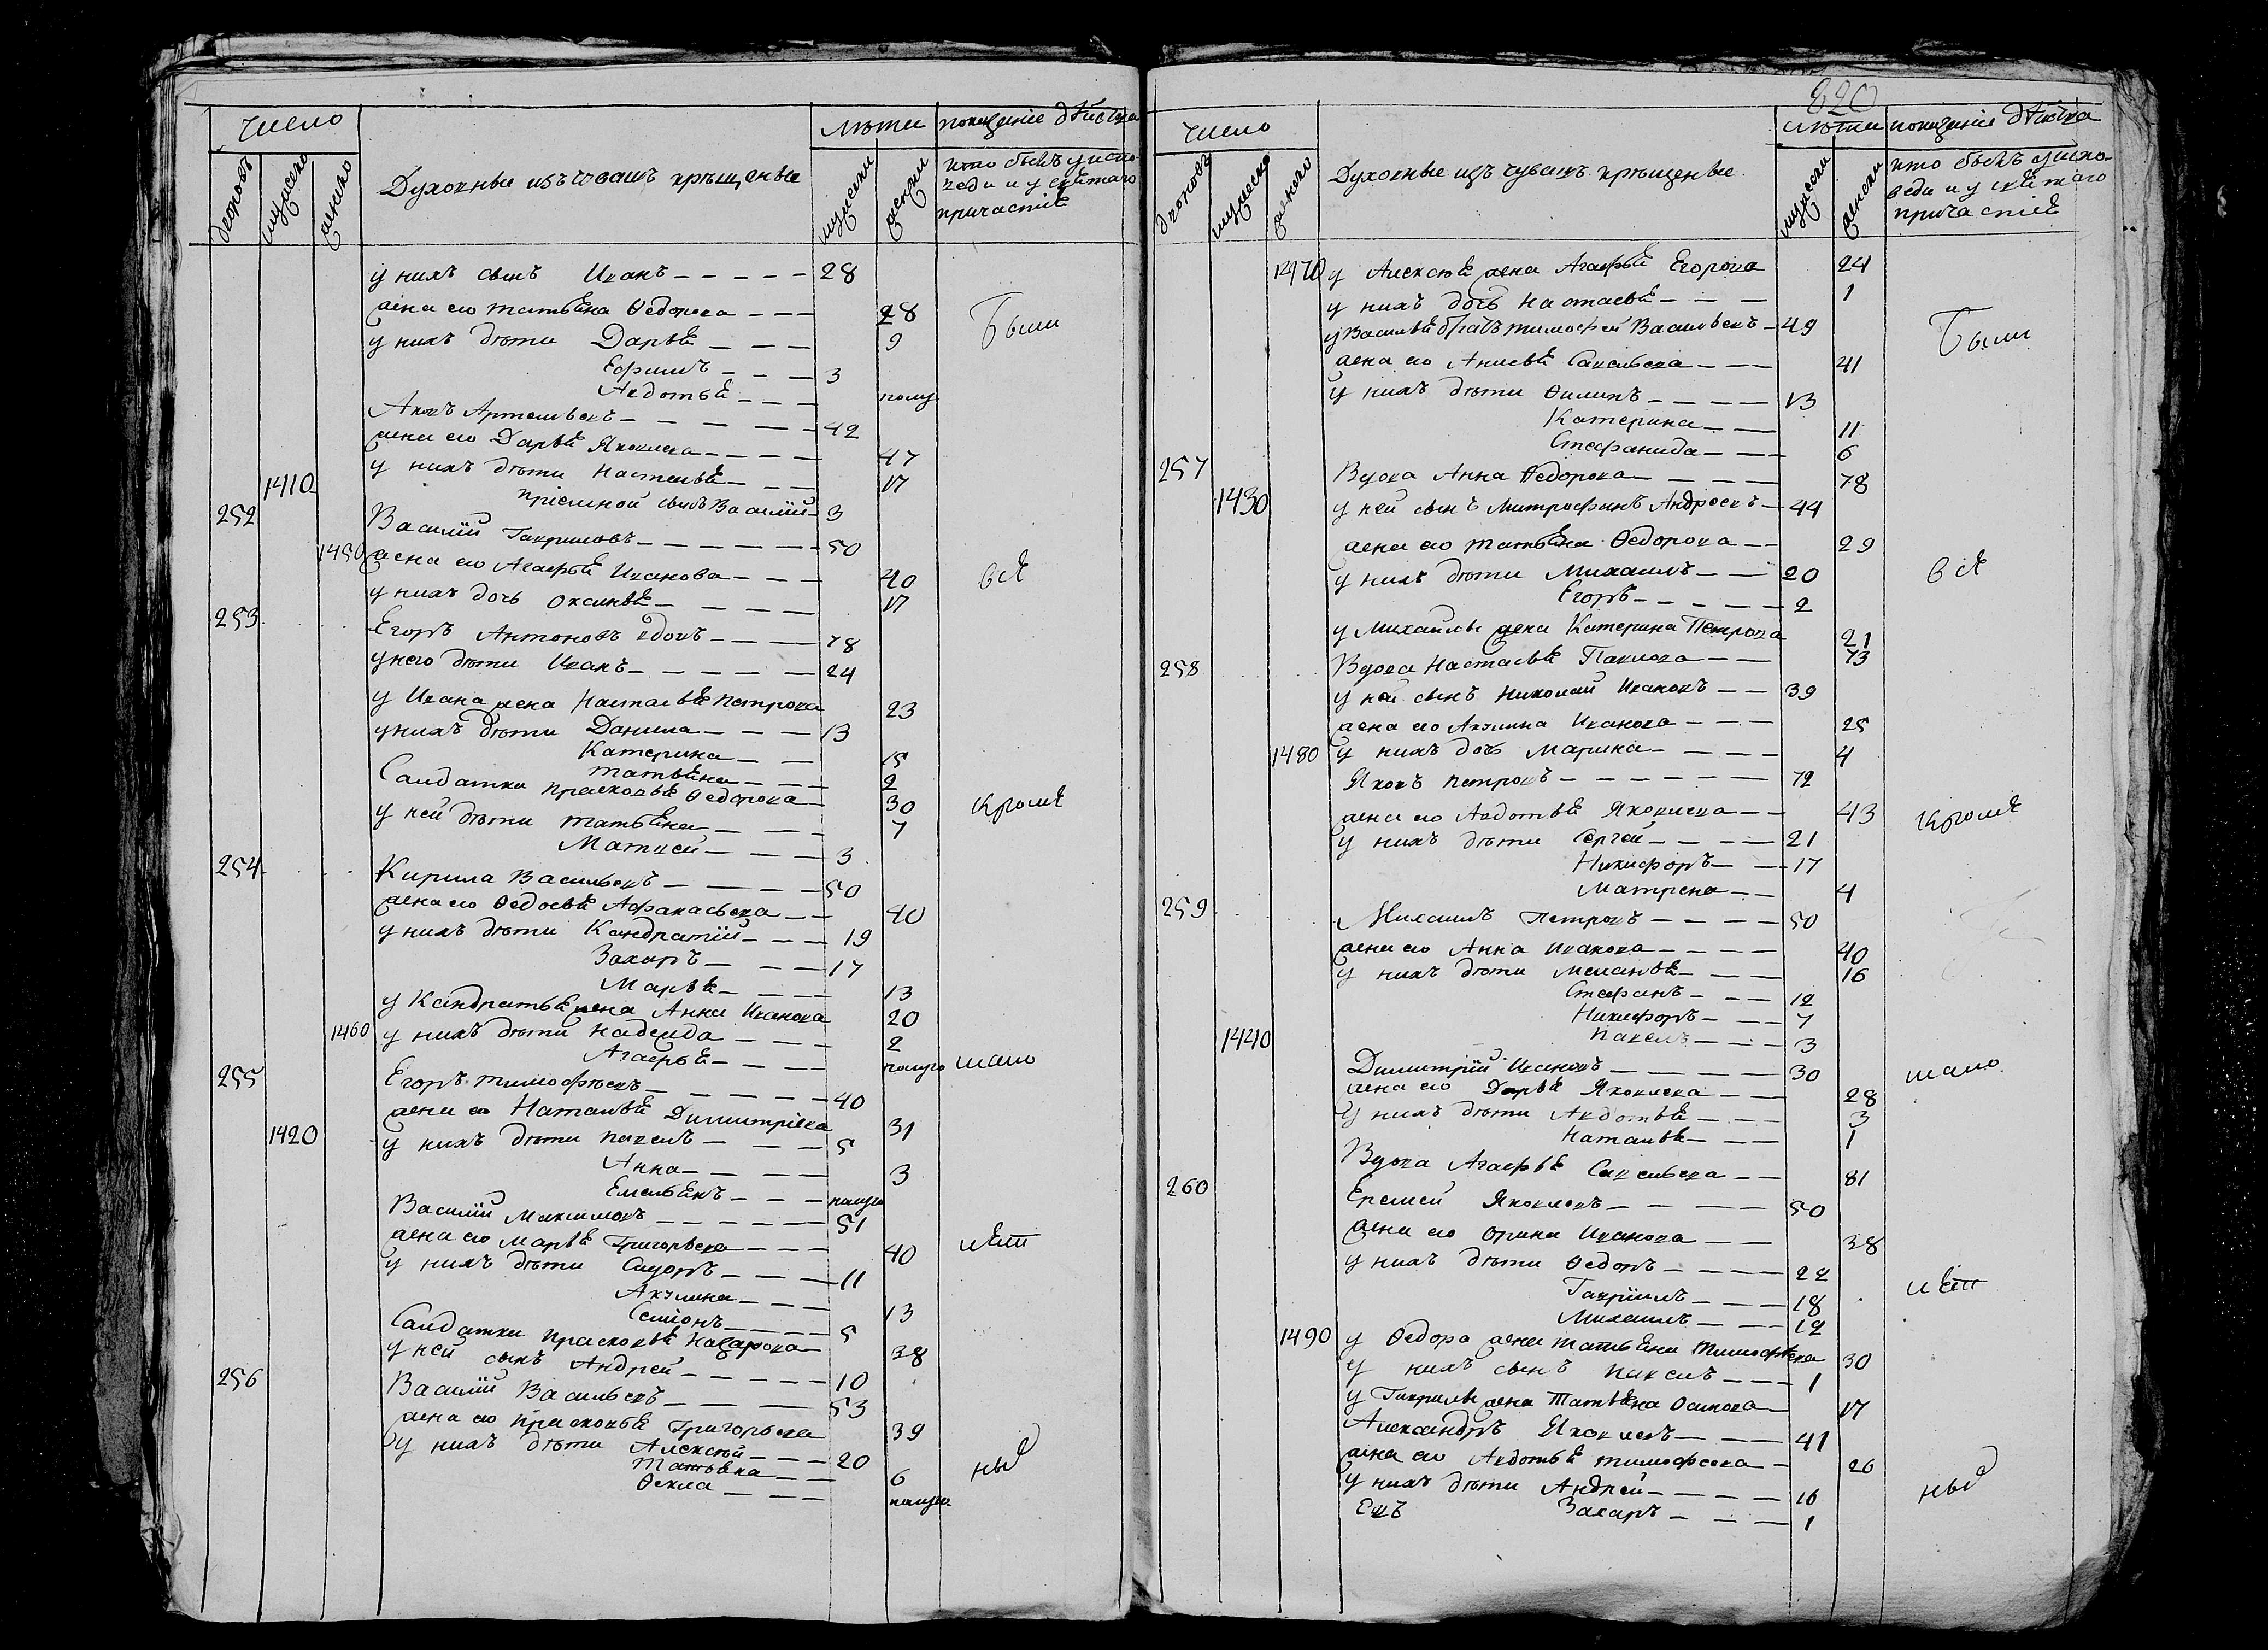 число
лѣта показаніе дѣйства
дворовъ мужеско женско
Духовные изъ чувашъ крѣщеные
мужески женски
кто былъ у испо
веди и у святаго
причастіѣ
у нихъ сынъ Иванъ 28
жена его татьѣна Ѳедорова 28
у нихъ дѣти Дарьѣ 9
Были
Ефимъ 3
Авдотьѣ полу
Яковъ Артемьевъ 42
жена его Дарьѣ Яковлева 47
у нихъ дѣти настасьѣ 17
1410 пріемной сынъ Василій 3
252 Василій Гавриловъ 50
1450 жена его Агафьѣ Иванова 40
всѣ
у нихъ дочь Оксиньѣ 17
253 Егоръ Антоновъ вдовъ 78
у него дѣти Иванъ 24
у Ивана жена Настасьѣ петрова 23
у нихъ дѣти Данила 13
Катерина 15
татьѣна 2
Салдатка прасковьѣ Ѳедорова 30
кромѣ
у ней дѣти татьѣна 7
Матвей 3
254 Кирила Васильевъ 50
жена его Ѳедосьѣ Афанасьева 40
у нихъ дѣти Кандратій 19
Захаръ 17
Марьѣ 13
у Кандратьѣ жена Анна Иванова 20
1460 у нихъ дѣти надежда 2
Агафьѣ полуго
мало
255 Егоръ тимофѣевъ 40
жена его Натальѣ Димитріева 31
1420 у нихъ дѣти павелъ 5
Анна 3
Емельѣнъ полуго
Василій Максимовъ 51
жена его марьѣ Григорьева 40
лѣт
у нихъ дѣти Сидоръ 11
Акулина 13
Семіонъ 5
Салдатка прасковьѣ Назарова 38
у ней сынъ Андрей 10
256 Василій Васильевъ 53
жена его прасковьѣ Григорьева 39
у нихъ дѣти Алексѣй 20
Татьѣна 6
ныѣ
Ѳекла полуго
820
число
лѣта показаніе дѣйства
дворовъ мужеско женско
Духовные изъ чувашъ крѣщеные
мужески женски
кто былъ у испо
веди и у святаго
причастіѣ
1470 у Алексѣѣ жена Агафьѣ Егорова 24
у нихъ дочь настасьѣ 1
у Васильѣ братъ тимофей Васильевъ 49
Были
жена его Анисьѣ Савельева 41
у нихъ дѣти Филипъ 13
Катерина 11
Стефанида 6
257 Вдова Анна Ѳедорова 78
1430 у ней сынъ Митрофанъ Андреевъ 44
жена его татьѣна Ѳедорова 29
у нихъ дѣти Михаилъ 20
всѣ
Егоръ 2
у Михаилы жена Катерина Петрова 21
258 Вдова Настасьѣ Павлова 73
у ней сынъ Николай Ивановъ 39
жена его Акулина Иванова 25
1480 у нихъ дочь Марина 4
Яковъ петровъ 72
жена его Авдотьѣ Яковлева 43
кромѣ
у нихъ дѣти Сергей 21
Никифоръ 17
Матрена 4
259 Михаилъ Петровъ 50
жена его Анна Иванова 40
у нихъ дѣти меланьѣ 16
Стефанъ 12
Никифоръ 7
1440 павелъ 3
Димитрій Ивановъ 30
мало
жена его Дарьѣ Яковлева 28
у нихъ дѣти Авдотьѣ 3
Натальѣ 1
Вдова Агафьѣ Савельева 81
260 Еремей Яковлевъ 50
жена его Орина Иванова 38
у нихъ дѣти Ѳедоръ 22
лѣт
Гаврійлъ 18
Михаилъ 12
1490 у Ѳедора жена татьѣна тимофѣева 30
у нихъ сынъ павелъ 1
у Гаврилы жена Татьѣна Осипова 17
Александръ Яковлевъ 41
жена его Авдотьѣ тимофеева 26
у нихъ дѣти Андрей 16
ныѣ
Захаръ 1